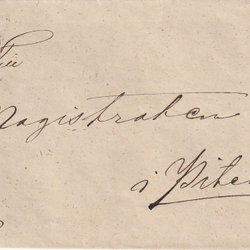 Till
Magistraten
i Pite